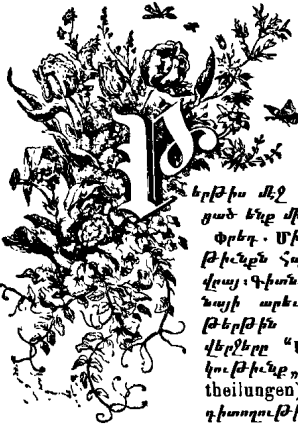 Թերթիս մէջ
ցած ենք մի
Փրեդ. Մի
թիւնքն Հա
վրայ։ Գիտն
նայի արեւ
թերթին
վերջերը
կութիւնք„
theilungen)
դիտողութի